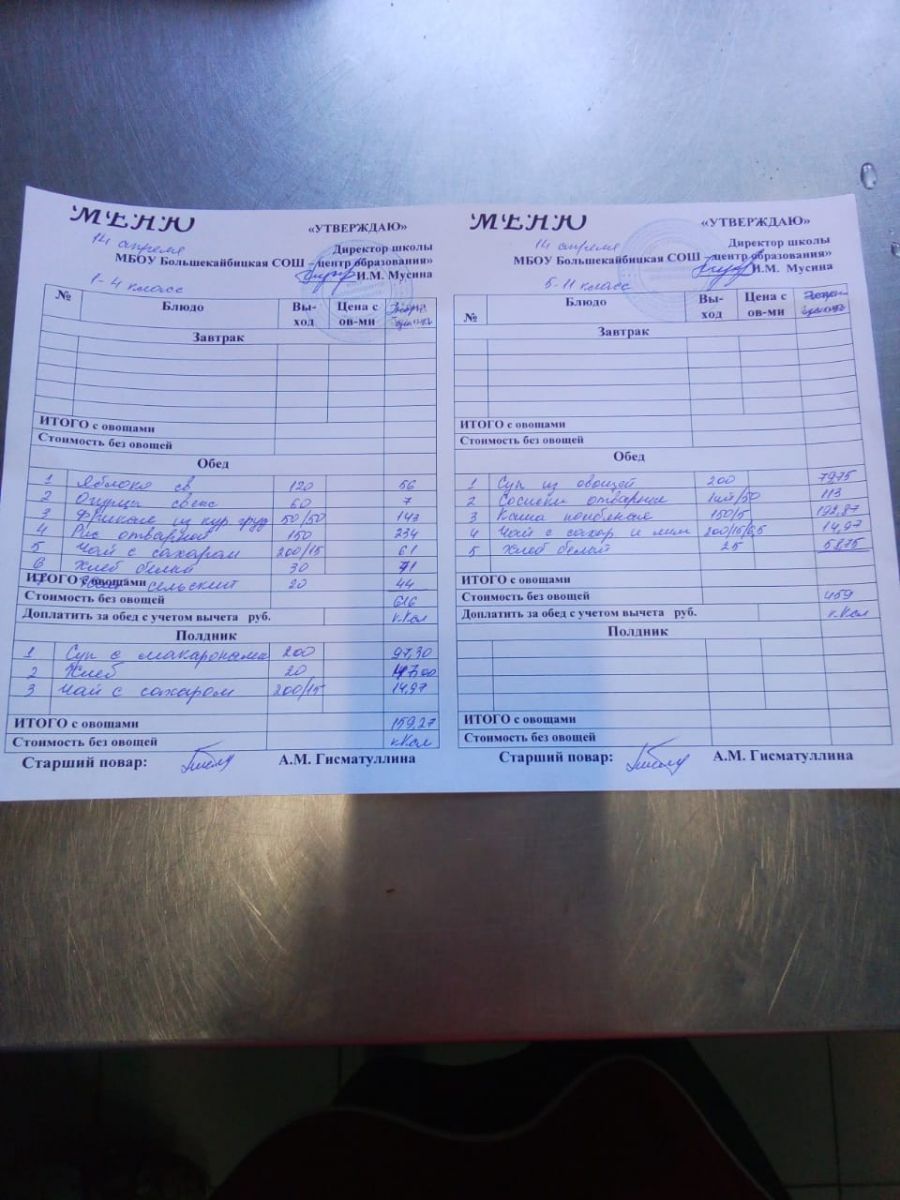 МЕНЮ
«УТВЕРЖДАЮ»
14 апреля
Директор школы
МБОУ Большекайбицкая СОШ – центр образования»
И.М. Мусина
1-4 класс
№ Блюдо Вы-ход Цена с ов-ми
Завтрак
ИТОГО с овощами
Стоимость без овощей
Обед
1 Яблоко св 120 56
2 Огурцы свеж 60 7
3 из кур груд 50/50 143
4 Рис отварной 150 234
5 Чай с сахаром 200/15 61
6 Хлеб белый 30 71
ИТОГО с овощами 20 44
Стоимость без овощей 616
Доплатить за обед с учетом вычета руб. кКал
Полдник
1 Суп с макаронами 200 97,30
2 Хлеб 20
3 Чай с сахаром 200/15 14,97
ИТОГО с овощами 159,27
Стоимость без овощей кКал
Старший повар: А.М. Гисматуллина
МЕНЮ
«УТВЕРЖДАЮ»
14 апреля
Директор школы
МБОУ Большекайбицкая СОШ – центр образования»
И.М. Мусина
5-11 класс
№ Блюдо Вы-ход Цена с ов-ми
Завтрак
ИТОГО с овощами
Стоимость без овощей
Обед
1 Суп из овощей 200 79,75
2 Сосиски отварные 1шт/50 113
3 Каша 150/5 192,87
4 Чай с сахар и лим 200/15/6,5 14,97
5 Хлеб белый 25 58,75
ИТОГО с овощами
Стоимость без овощей 459
Доплатить за обед с учетом вычета руб. кКал
Полдник
ИТОГО с овощами
Стоимость без овощей
Старший повар: А.М. Гисматуллина